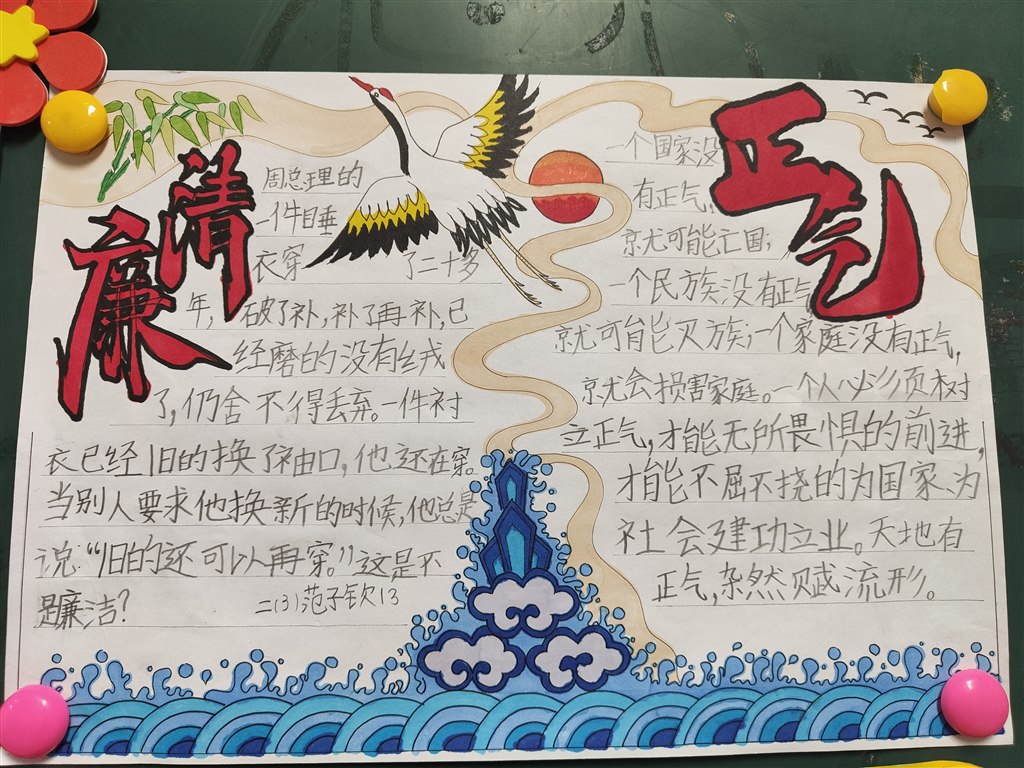 清廉
周总理的
一件睡
衣穿了二十多
年，破了补，补了再补，已
经磨的没有绒
了，仍舍不得丢弃。一件衬
衣已经旧的换了袖口，他还在穿。
当别人要求他换新的时候，他总是
说：“旧的还可以再穿。”这是不
是廉洁？
二（3）范子钦13
正气
一个国家没
有正气，
就可能亡国；
一个民族没有正气
就可能灭族；一个家庭没有正气，
就会损害家庭。一个人必须树
立正气，才能无所畏惧的前进，
才能不屈不挠的为国家、为
社会建功立业。天地有
正气，杂然赋流形。